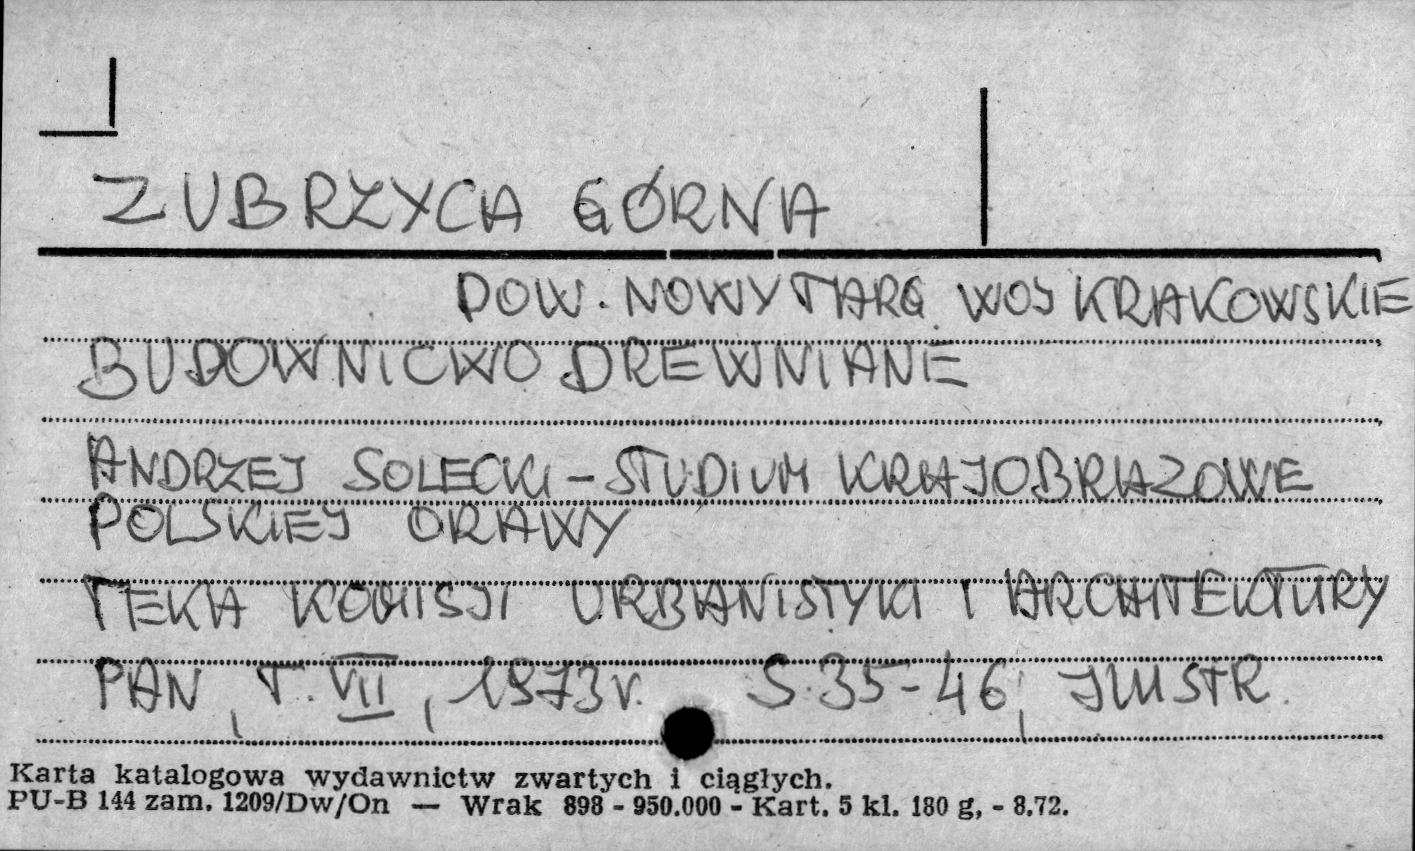 ZUBRZYCA GÓRNA
POW. NOWY TARG. WOJ KRAKOWSKIE
BUDOWNICWO DREWNIANE
ANDRZEJ SOLECKI - STUDIUM KRAJOBRAZOWE
POLSKIEJ ORAWY
TEKA KOMISJI URBANISTYKI I ARCHITEKTURY
PAN, T. VII, 1973 r. S. 35-46, ILUSTR.
Karta katalogowa wydawnictw zwartych i ciągłych.
PU-B 144 zam. 1209/Dw/On — Wrak 898 - 950.000 - Kart. 5 kl. 180 g, - 8.72.